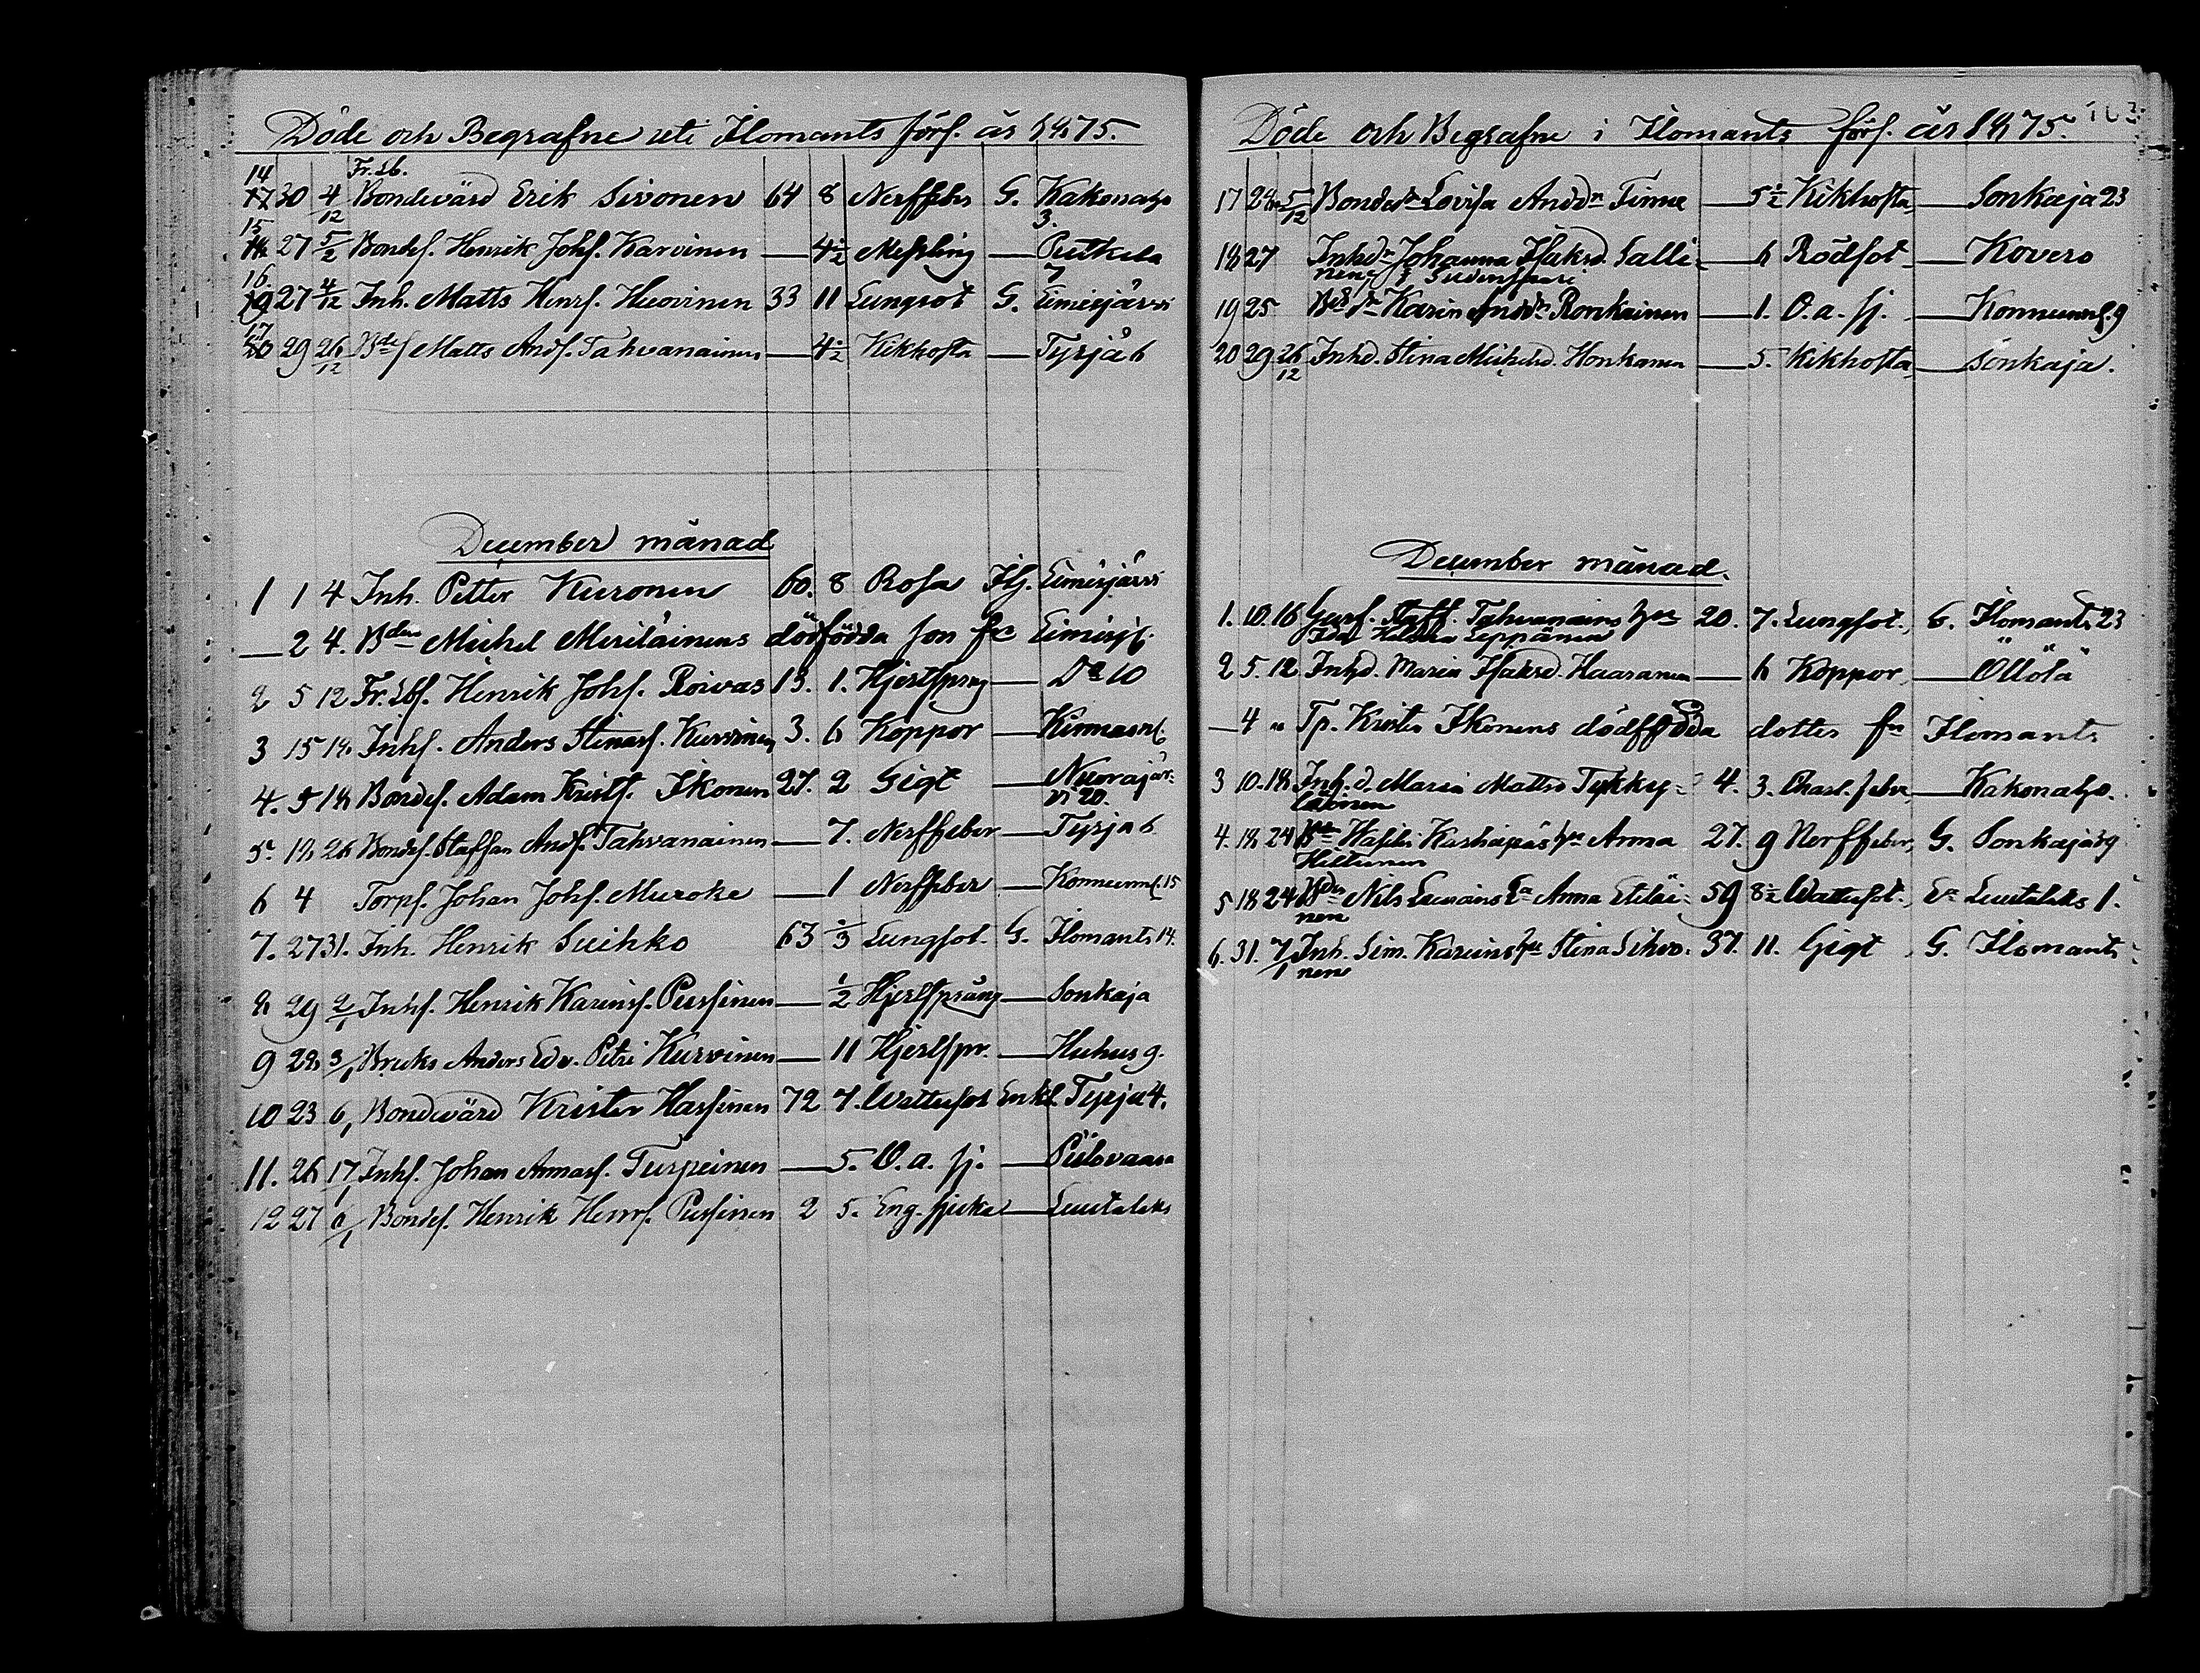 Döde och Begrafne uti Ilomants förs. år 1875.
Fr. Lb.
14 17 30 4/12 Bondevärd Erik Sivonen 64 8 Nerffeber G. Kakonaho 3.
15 27 5/12 Bondes. Henrik Johs. Karvinen — 4 1/2 Messling — Putkela 7
16. 19 27 4/12 Inh. Matts Henrs. Huovinen 33 11 Lungsot G. Eimisjärvi
17 20 29 26/12 Bdes Matts Ands. Tahvanainen — 4 1/2 Kikhosta — Tyrjä 6
December månad
1 1 4 Inh. Petter Kuronen 60. 8 Rosa Eimisjärvi
— 2 4. Bdens Michel Meriläinens dödfödda son fr Eimisj.
2 5 12 Fr. Lbs. Henrik Johs. Roivas 13. 1. Hjertspräng — Do 10
3 15 18 Inhs. Anders Stinass. Kurvinen 3. 6 Koppor —
4. 5 18 Bondes. Adam Krists. Ikonen 27. 2 Gigt — Nuorajär-
vi 20.
5. 18 26 Bondes. Staffan Ands. Tahvanainen — 7. Nerffeber — Tyrjä 6
6 4 Torps. Johan Johs. Muroke — 1 Nerffeber — Konnunns. 15
7. 27 31. Inh. Henrik Suihko 63 2/3 Lungsot. G. Ilomants 14.
8 29 2/1 Inhs. Henrik Karins. Pussinen — 1/2 Hjertspräng — Sonkaja
9 28 3/1 Bruks Anders Edv. Petri Kurvinen — 11 Hjertspr. — Huhus 9.
10 23 6/1 Bondevärd Krister Hassinen 72 7. Wattusot Enkl. Tyrjä 4.
11. 26 17/1 Inhs. Johan Annass. Turpeinen — 5. O. a. sj. — Piilovaara
12 27 6/1 Bondes. Henrik Henrs. Pussinen 2 5. Eng. sjuka — Luutalaks
Döde och Begrafne i Ilomants förs. år 1875.
17 28 5/12 Bondedr Lovisa Anddr Timne — 5 1/2 Kikhosta — Sonkaja 23
18 27 Inhdr Johanna Isaksd. Salli- — 6 Rödsot — Kovero
nen,
19 25 Bdedr Karin Anddr Ronkainen — 1. O. a. sj. — Konnunns. 9
20 29 26/12 Inhd. Stina Michelsd. Honkanen — 5. Kikhosta — Sonkaja.
December månad.
1. 10. 16 Staff. Tahvanains hu 20. 7. Lungsot. G. Ilomants 23
Ida Helena Leppänen
2 5. 12 Inhd. Maria Isaksd. Haaranen — 6 Koppor — Öllölä
— 4 " Tp. Krister Ikonens dödfödda dotter fr Ilomants
3 10. 18 Inh. d. Maria Mattsd Tykky- 4. 3. Charl. feber — Kakonaho.
läinen
4. 18 24 hu Anna 27. 9 Nerffeber, G. Sonkaja 39
Hiltunen
5 18 24 Bdes Nils Ea Anna Eteläi- 59 8 1/2 Wattusot. Ea Luutalaks 1.
nen
6. 31. 7/1 Inh. Sim. Karvins hu Stina Sihvo- 37. 11. Gigt G. Ilomants
nen